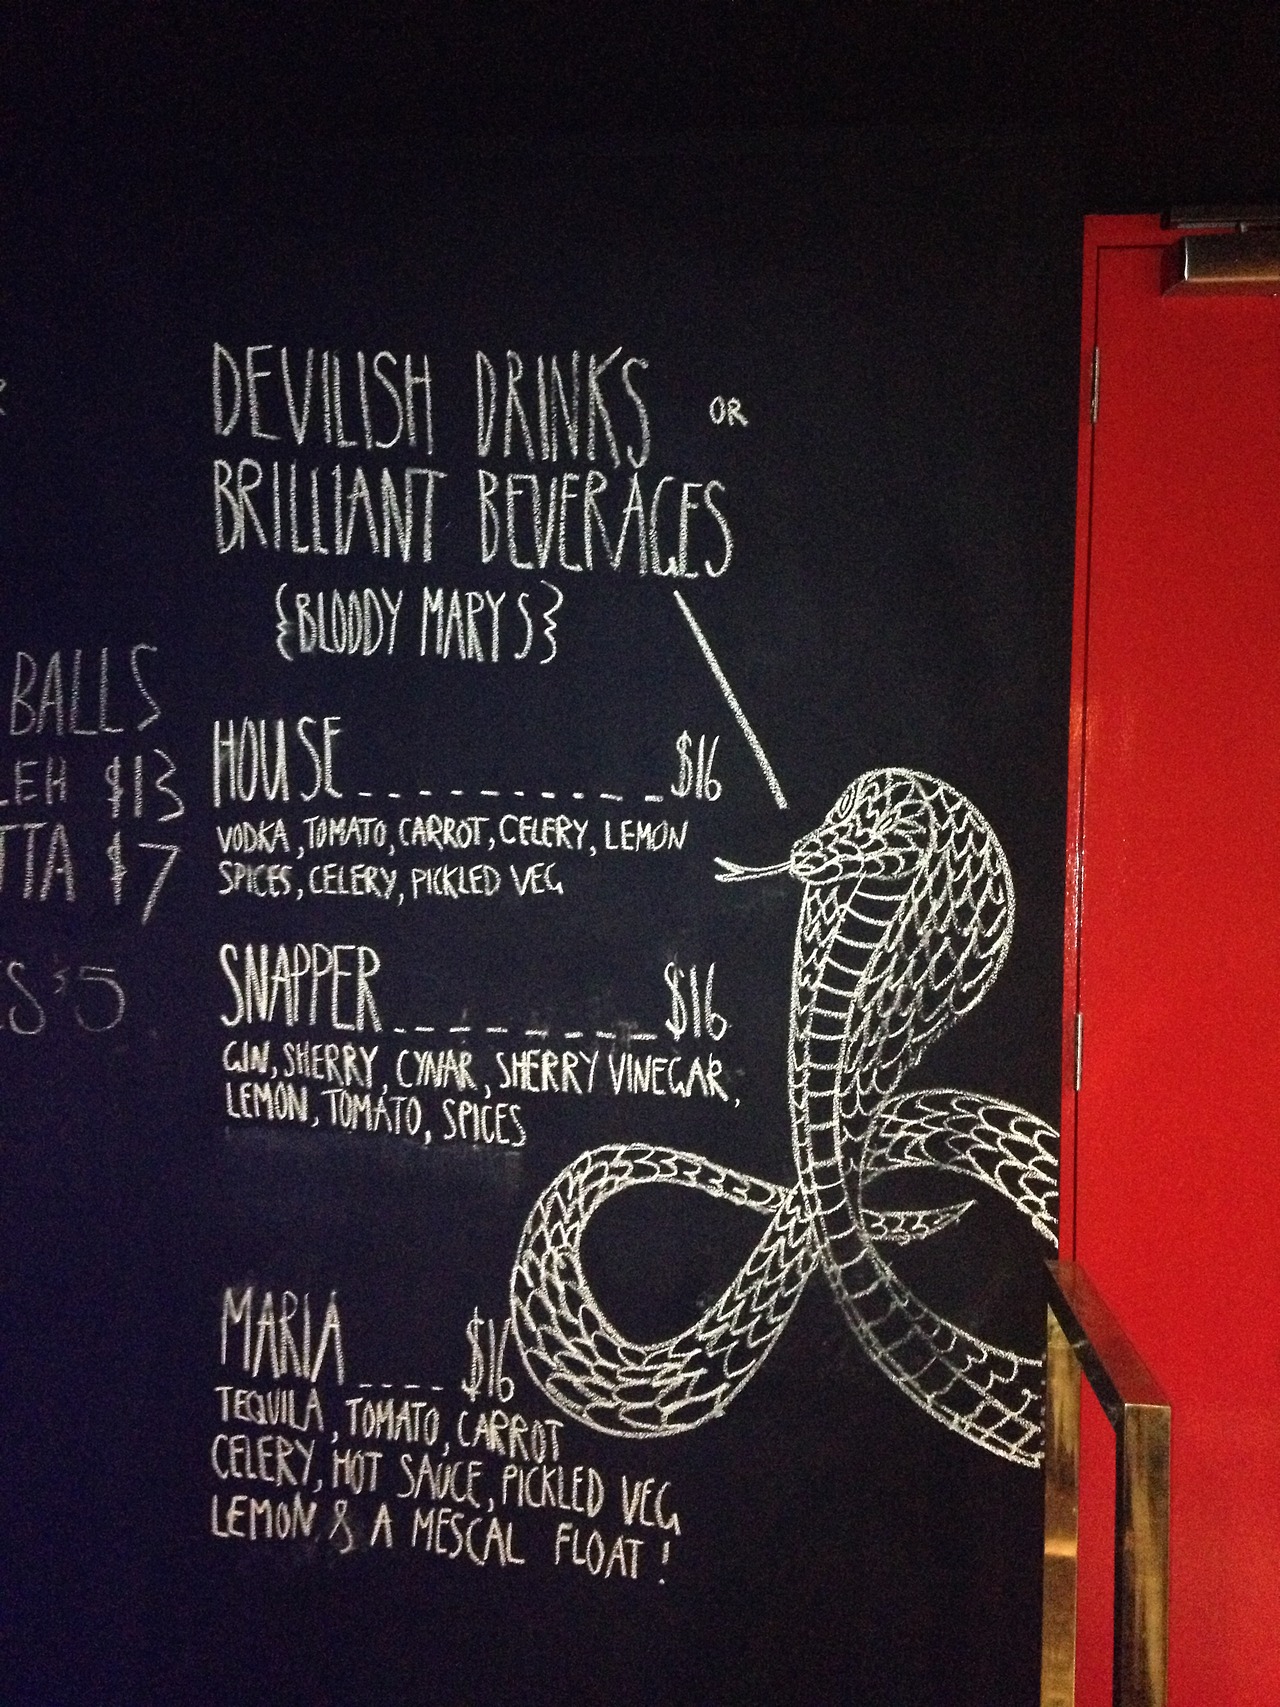 DEVILISH DRINKS OR
BRILLIANT BEVERAGES
{BLOODY MARYS}
HOUSE__________$16
VODKA, TOMATO, CARROT, CELERY, LEMON
SPICES, CELERY, PICKLED VEG
SNAPPER_________$16
GIN, SHERRY, CYNAR, SHERRY VINEGAR,
LEMON, TOMATO, SPICES
MARIA____$16
TEQUILA, TOMATO, CARROT
CELERY, HOT SAUCE, PICKLED VEG
LEMON & A MESCAL FLOAT!
BALLS
$13
$7
$5